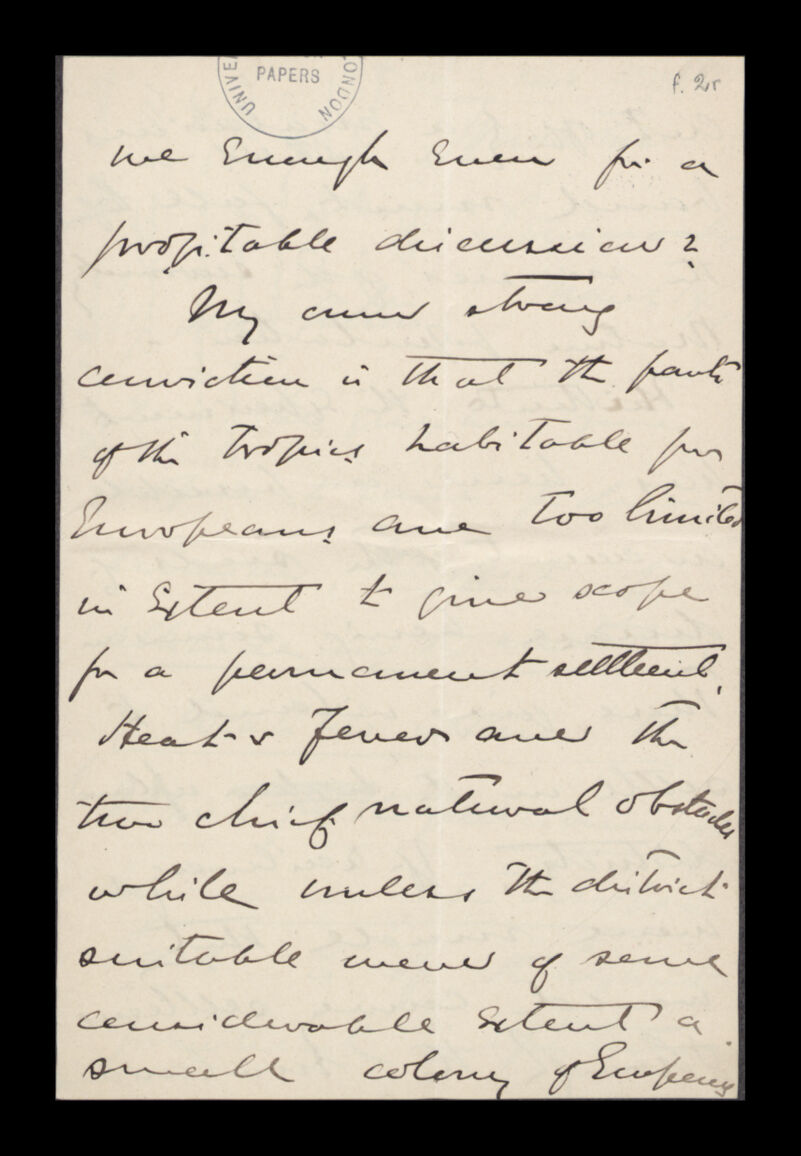 UNIVE
PAPERS
LONDON
f. 2r
we Enough Even for a
profitable discussion?
My own strong
conviction is that the parts
of the tropics habitable for
Europeans are too limited
in Extent to give scope
for a permanent settlemt.
Heat & Fever are the
two chief natural obstacles
while unless the district
suitable were of some
considerable Extent a
small colony of Europeans